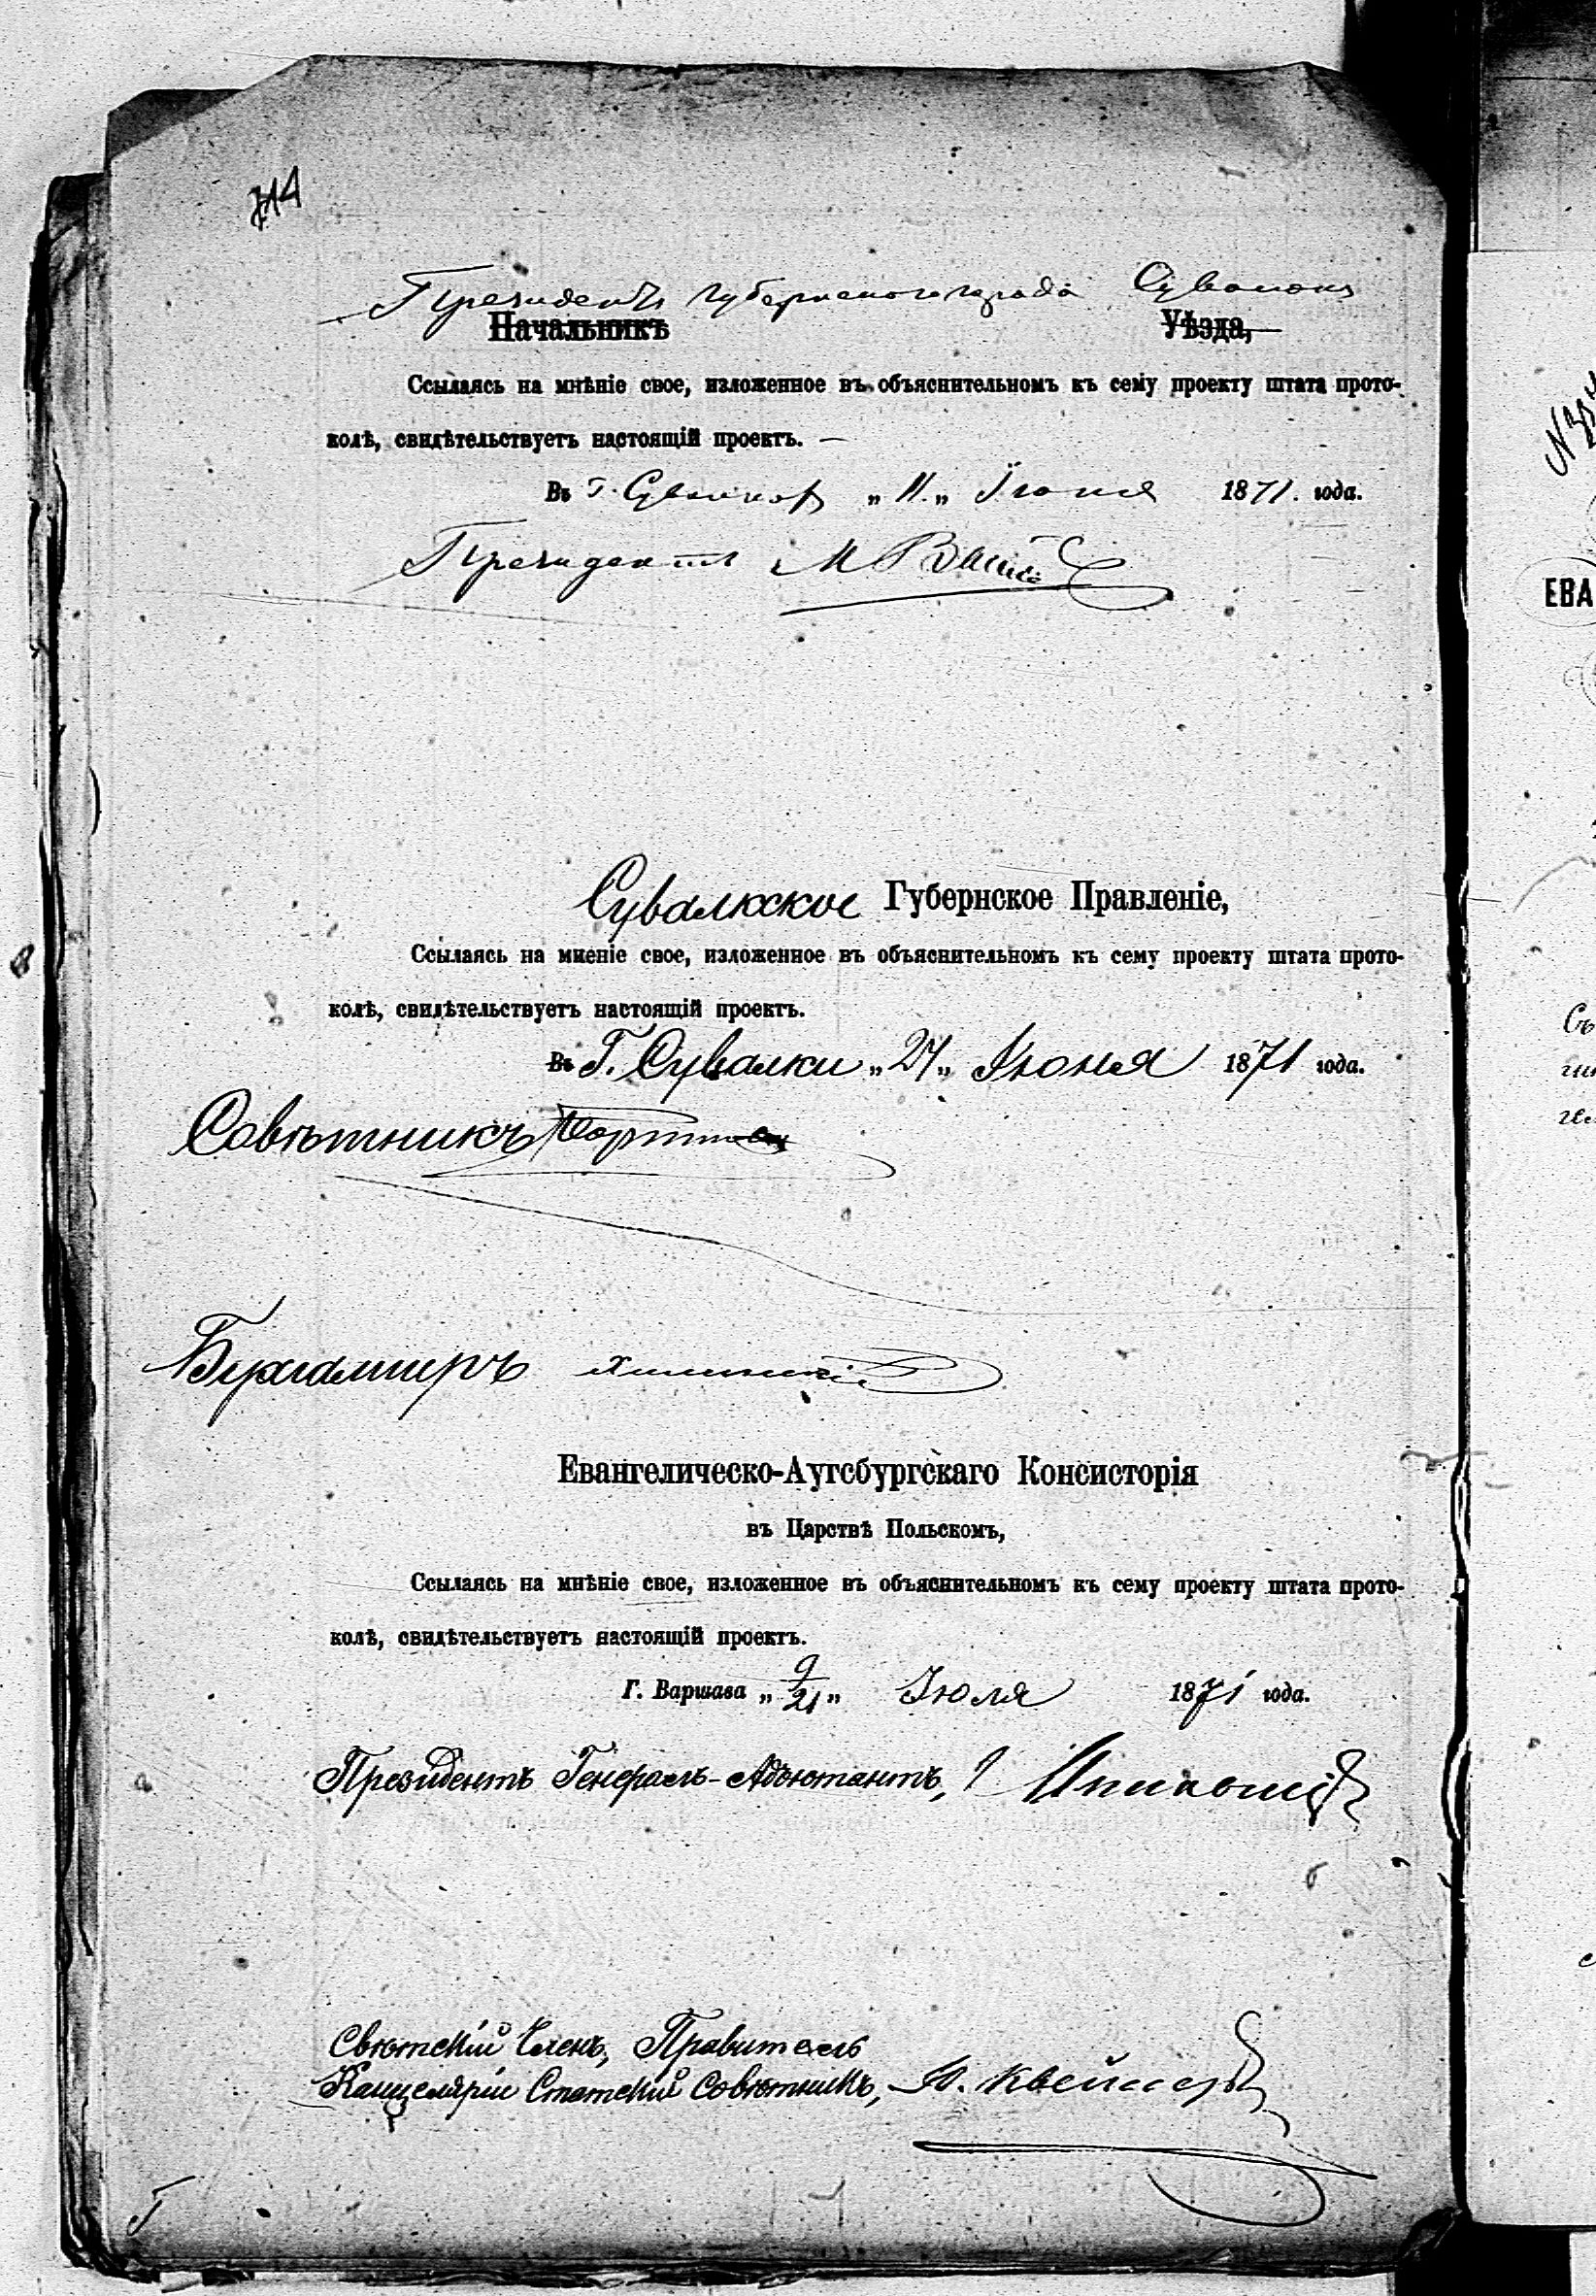 Президентъ губернскаго города Сувалокъ
Начальникъ Уѣзда,
Ссылаясь на мнѣніе свое, изложенное въ объяснительномъ къ сему проекту штата прото-
колѣ, свидѣтельствуетъ настоящій проектъ. —
Въ г. „11„ Іюня 1871. года.
Президентъ М
Сувалкское Губернское Правленіе,
Ссылаясь на мненіе свое, изложенное въ объяснительномъ къ сему проекту штата прото-
колѣ, свидѣтельствуетъ настоящій проектъ.
Въ Г. Сувалки „ „ Іюня 1871 года.
Совѣтникъ
Бухгалтеръ
Евангелическо-Аугсбургскаго Консисторія
въ Царствѣ Польскомъ,
Ссылаясь на мнѣніе свое, изложенное въ объяснительномъ къ сему проекту штата прото-
колѣ, свидѣтельствуетъ настоящій проектъ.
Г. Варшава „ 9/21 „ Іюля 1871 года.
Президентъ Генералъ-Адъютантъ,
Свѣтскій Членъ, Правитель
Канцеляріи Статскій Совѣтникъ,
ЕВА